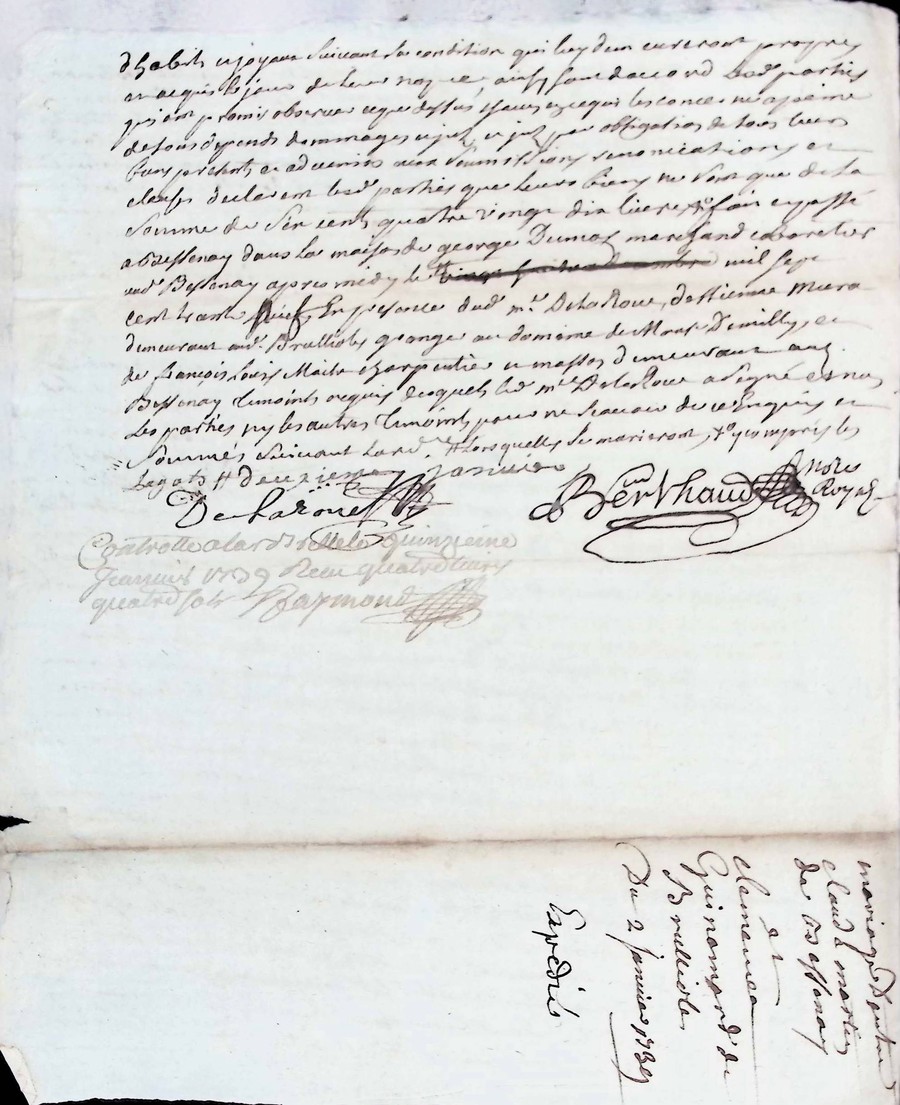 d'habits et joyaux suivant sa condition qui luy demeureront propres
et acquis le jour de leur nopce, ainsy sont d'accord lesd. parties
qui ont promis observer ce que dessus
de tous depends dommages et par obligation de tous leurs
biens presents et advenirs aux soumissions renonciations et
clauses declarent lesd. parties que leurs biens ne sont que de la
somme de cent quatre vingt dix livres fait et passé
a Bessenay dans la maison de george Dumas marchand cabaretier
aud. Bessenay apres midy le mil sept
cent trente neuf En presence dud. mre. DelaRoue, d'Estienne
demeurant aud. Brullioles granger au domaine de et
de françois Louis Maitre Charpentier et demeurant aud.
Bessenay temoints requis desquels led. mre. DelaRoue a signé et non
les parties ny les autres temoints pour ne scavoir de ce Enquis et
sommés suivant lord. # Lorsquelle se marieront, y compris les
Legats # deuzieme janvier
DelaRoue
Berthaud nore
Royal
Controllé a larbresle le Quinzieme
Janvier 1739 Recu quatre livres
quatre sols Raymond
mariage D'entre
claude martin
de Bessenay
et
clemence
Guinamard de
Brullioles
Du 2 janvier 1739
Expedié